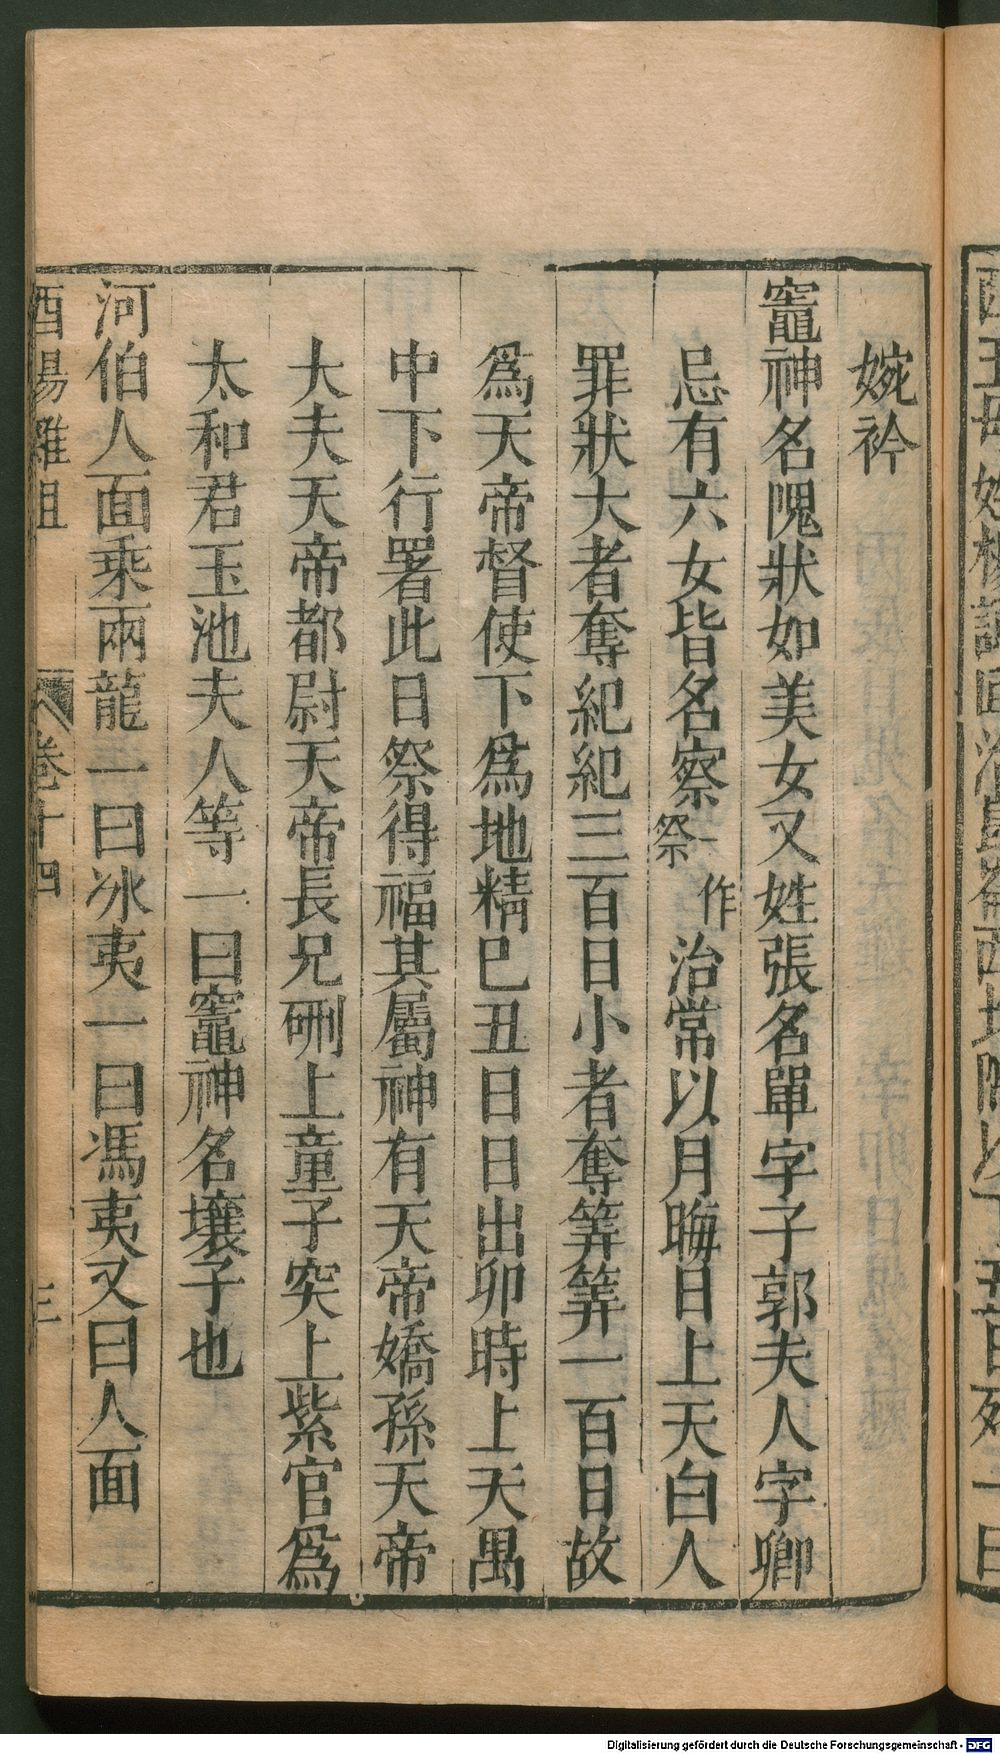 婉衿
竈神名隗狀如美女又姓張名單字子郭夫人字卿
忌有六女皆名察一作祭治常以月晦日上天白人
罪狀大者奪紀紀三百日小者奪筭筭一百日故
爲天帝督使下爲地精巳丑日日出卯時上天禺
中下行署此日祭得福其屬神有天帝嬌孫天帝
大夫天帝都尉天帝長兄硎上童子突上紫官爲
太和君玉池夫人等一曰竈神名壤子也
河伯人面乘兩龍一曰冰夷一曰馮夷又曰人面
酉陽雜俎 卷十四 三
Digitalisierung gefördert durch die Deutsche Forschungsgemeinschaft - DFG